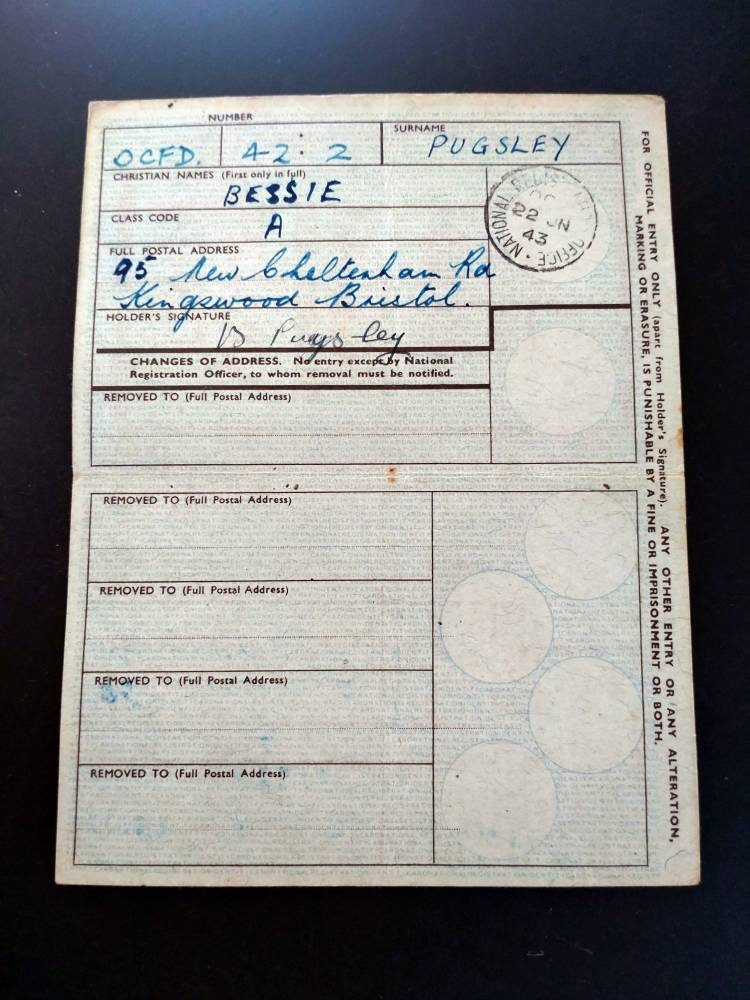 NUMBER
OCFD. 42: 2
SURNAME
PUGSLEY
CHRISTIAN NAMES (First only in full)
BESSIE
CLASS CODE
A
FULL POSTAL ADDRESS
95 New Cheltenham Rd
Kingswood Bristol.
HOLDER'S SIGNATURE
B Pugsley
NATIONAL OFFICE
22 JN
43
CHANGES OF ADDRESS. No entry except by National
Registration Officer, to whom removal must be notified.
REMOVED TO (Full Postal Address)
REMOVED TO (Full Postal Address)
REMOVED TO (Full Postal Address)
REMOVED TO (Full Postal Address)
REMOVED TO (Full Postal Address)
FOR OFFICIAL ENTRY ONLY (apart from Holder's Signature). ANY OTHER ENTRY OR ANY ALTERATION,
MARKING OR ERASURE, IS PUNISHABLE BY A FINE OR IMPRISONMENT OR BOTH.